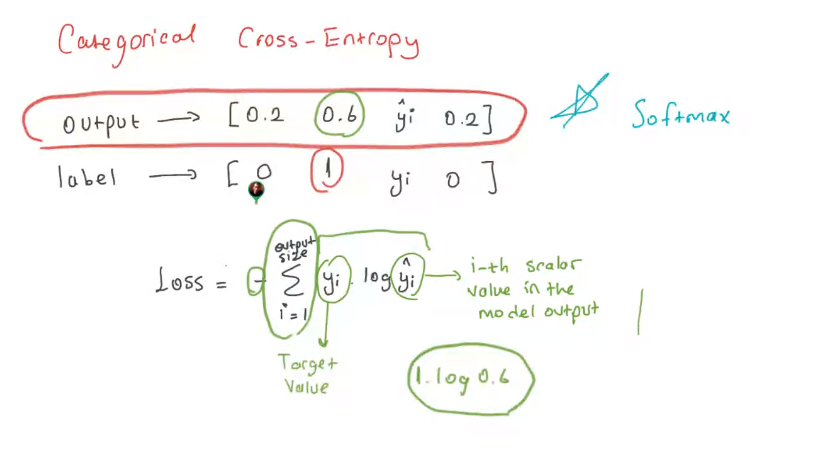 Categorical Cross-Entropy
output → [0.2 0.6 ŷi 0.2]
Softmax
label → [0 1 yi 0]
Loss = - output size ∑ i=1 yi . log ŷi
i-th scalar
value in the
model output
Target
Value
1.log 0.6